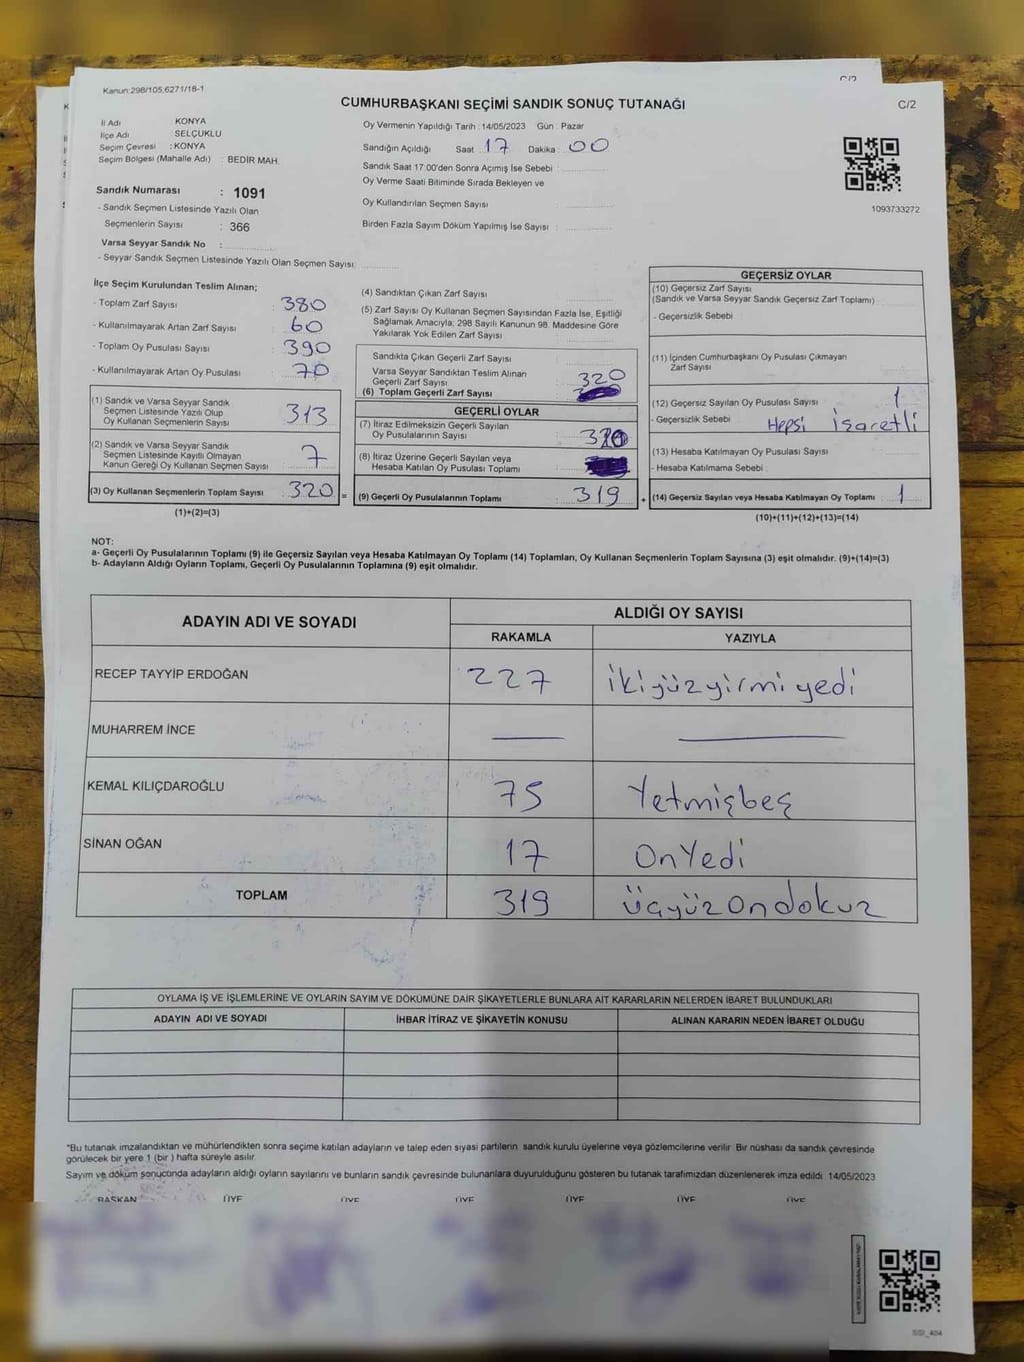 C/2
Kanun:298/105,6271/18-1
CUMHURBAŞKANI SEÇİMİ SANDIK SONUÇ TUTANAĞI
C/2
İl Adı : KONYA
İlçe Adı : SELÇUKLU
Seçim Çevresi : KONYA
Seçim Bölgesi (Mahalle Adı) : BEDİR MAH.
Sandık Numarası : 1091
- Sandık Seçmen Listesinde Yazılı Olan
Seçmenlerin Sayısı : 366
Varsa Seyyar Sandık No :
- Seyyar Sandık Seçmen Listesinde Yazılı Olan Seçmen Sayısı:
Oy Vermenin Yapıldığı Tarih : 14/05/2023 Gün : Pazar
Sandığın Açıldığı Saat : 17 Dakika : 00
Sandık Saat 17:00'den Sonra Açımış İse Sebebi :
Oy Verme Saati Bitiminde Sırada Bekleyen ve
Oy Kullandırılan Seçmen Sayısı :
Birden Fazla Sayım Döküm Yapılmış İse Sayısı :
1093733272
İlçe Seçim Kurulundan Teslim Alınan;
- Toplam Zarf Sayısı : 380
- Kullanılmayarak Artan Zarf Sayısı : 60
- Toplam Oy Pusulası Sayısı : 390
- Kullanılmayarak Artan Oy Pusulası : 70
(1) Sandık ve Varsa Seyyar Sandık
Seçmen Listesinde Yazılı Olup
Oy Kullanan Seçmenlerin Sayısı : 313
(2) Sandık ve Varsa Seyyar Sandık
Seçmen Listesinde Kayıtlı Olmayan
Kanun Gereği Oy Kullanan Seçmen Sayısı : 7
(3) Oy Kullanan Seçmenlerin Toplam Sayısı : 320 =
(1)+(2)=(3)
(4) Sandıktan Çıkan Zarf Sayısı :
(5) Zarf Sayısı Oy Kullanan Seçmen Sayısından Fazla İse, Eşitliği
Sağlamak Amacıyla; 298 Sayılı Kanunun 98. Maddesine Göre
Yakılarak Yok Edilen Zarf Sayısı :
Sandıkta Çıkan Geçerli Zarf Sayısı :
Varsa Seyyar Sandıktan Teslim Alınan
Geçerli Zarf Sayısı : 320
(6) Toplam Geçerli Zarf Sayısı :
GEÇERLİ OYLAR
(7) İtiraz Edilmeksizin Geçerli Sayılan
Oy Pusulalarının Sayısı :
(8) İtiraz Üzerine Geçerli Sayılan veya
Hesaba Katılan Oy Pusulası Toplamı :
(9) Geçerli Oy Pusulalarının Toplamı : 319 +
GEÇERSİZ OYLAR
(10) Geçersiz Zarf Sayısı
(Sandık ve Varsa Seyyar Sandık Geçersiz Zarf Toplamı) :
- Geçersizlik Sebebi :
(11) İçinden Cumhurbaşkanı Oy Pusulası Çıkmayan
Zarf Sayısı :
(12) Geçersiz Sayılan Oy Pusulası Sayısı : 1
- Geçersizlik Sebebi : Hepsi İşaretli
(13) Hesaba Katılmayan Oy Pusulası Sayısı :
- Hesaba Katılmama Sebebi :
(14) Geçersiz Sayılan veya Hesaba Katılmayan Oy Toplamı : 1
(10)+(11)+(12)+(13)=(14)
NOT:
a- Geçerli Oy Pusulalarının Toplamı (9) ile Geçersiz Sayılan veya Hesaba Katılmayan Oy Toplamı (14) Toplamları, Oy Kullanan Seçmenlerin Toplam Sayısına (3) eşit olmalıdır. (9)+(14)=(3)
b- Adayların Aldığı Oyların Toplamı, Geçerli Oy Pusulalarının Toplamına (9) eşit olmalıdır.
ADAYIN ADI VE SOYADI ALDIĞI OY SAYISI
RAKAMLA YAZIYLA
RECEP TAYYİP ERDOĞAN 227 ikiyüzyirmi yedi
MUHARREM İNCE
KEMAL KILIÇDAROĞLU 75 Yetmişbeş
SİNAN OĞAN 17 OnYedi
TOPLAM 319 üçyüzOndokuz
OYLAMA İŞ VE İŞLEMLERİNE VE OYLARIN SAYIM VE DÖKÜMÜNE DAİR ŞİKAYETLERLE BUNLARA AİT KARARLARIN NELERDEN İBARET BULUNDUKLARI
ADAYIN ADI VE SOYADI İHBAR İTİRAZ VE ŞİKAYETİN KONUSU ALINAN KARARIN NEDEN İBARET OLDUĞU
*Bu tutanak imzalandıktan ve mühürlendikten sonra seçime katılan adayların ve talep eden siyasi partilerin sandık kurulu üyelerine veya gözlemcilerine verilir. Bir nüshası da sandık çevresinde
görülecek bir yere 1 (bir) hafta süreyle asılır.
Sayım ve döküm sonucunda adayların aldığı oyların sayılarını ve bunların sandık çevresinde bulunanlara duyurulduğunu gösteren bu tutanak tarafımızdan düzenlenerek imza edildi. 14/05/2023
BAŞKAN ÜYE ÜYE ÜYE ÜYE ÜYE ÜYE
SSI_404